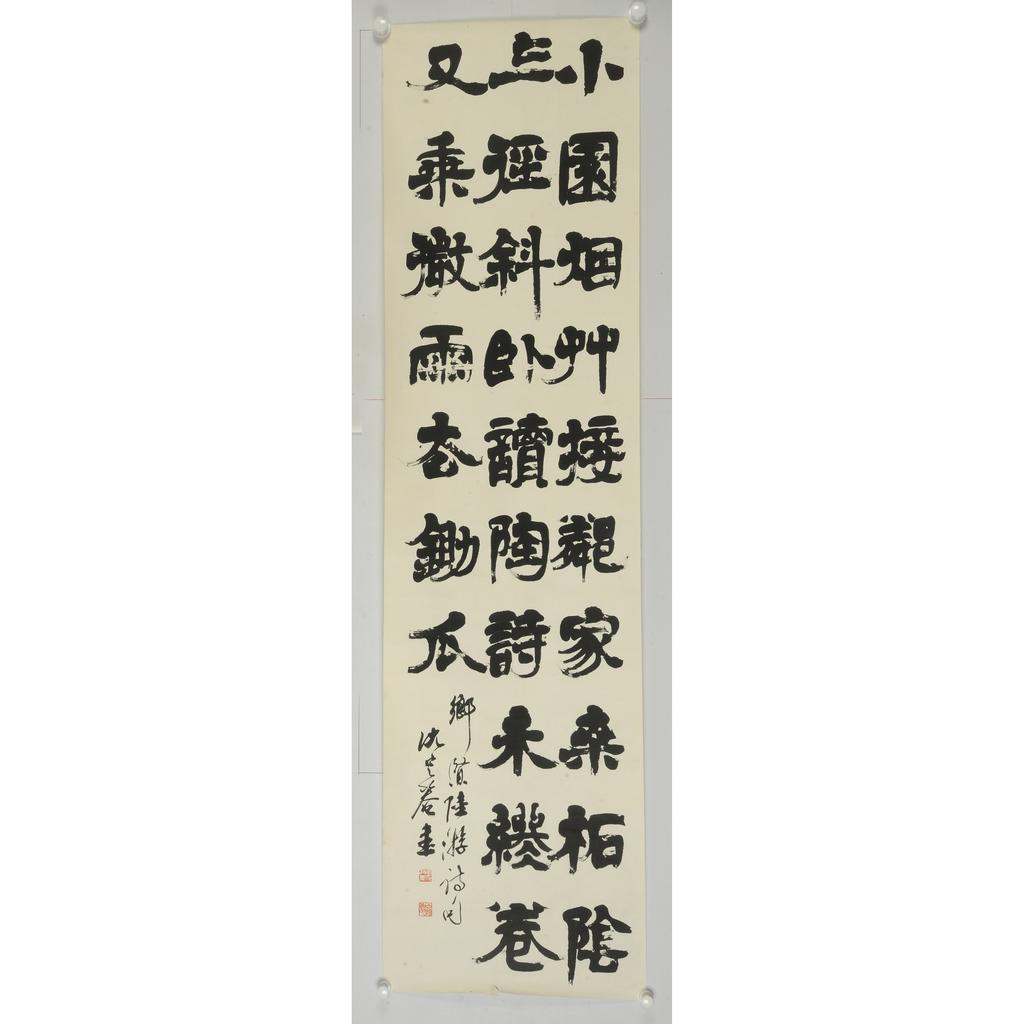 小園烟艸接鄰家桑柘陰
〻一徑斜卧讀陶詩未終卷
又乘微雨去鋤瓜
鄉賢陸游詩句
沈定菴書